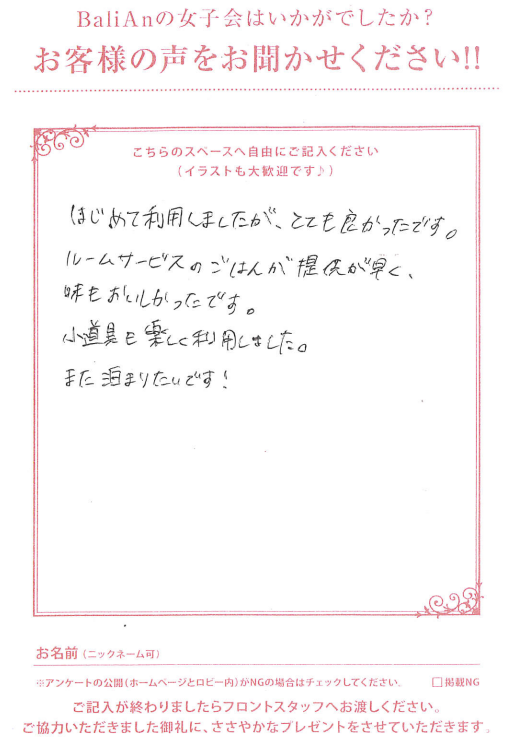 BaliAnの女子会はいかがでしたか？
お客様の声をお聞かせください!!
こちらのスペースへ自由にご記入ください
（イラストも大歓迎です♪）
はじめて利用しましたが、とても良かったです。
ルームサービスのごはんが提供が早く、
味もおいしかったです。
小道具も楽しく利用しました。
また泊まりたいです！
お名前（ニックネーム可）
※アンケートの公開（ホームページとロビー内）がNGの場合はチェックしてください。 □掲載NG
ご記入が終わりましたらフロントスタッフへお渡しください。
ご協力いただきました御礼に、ささやかなプレゼントをさせていただきます。